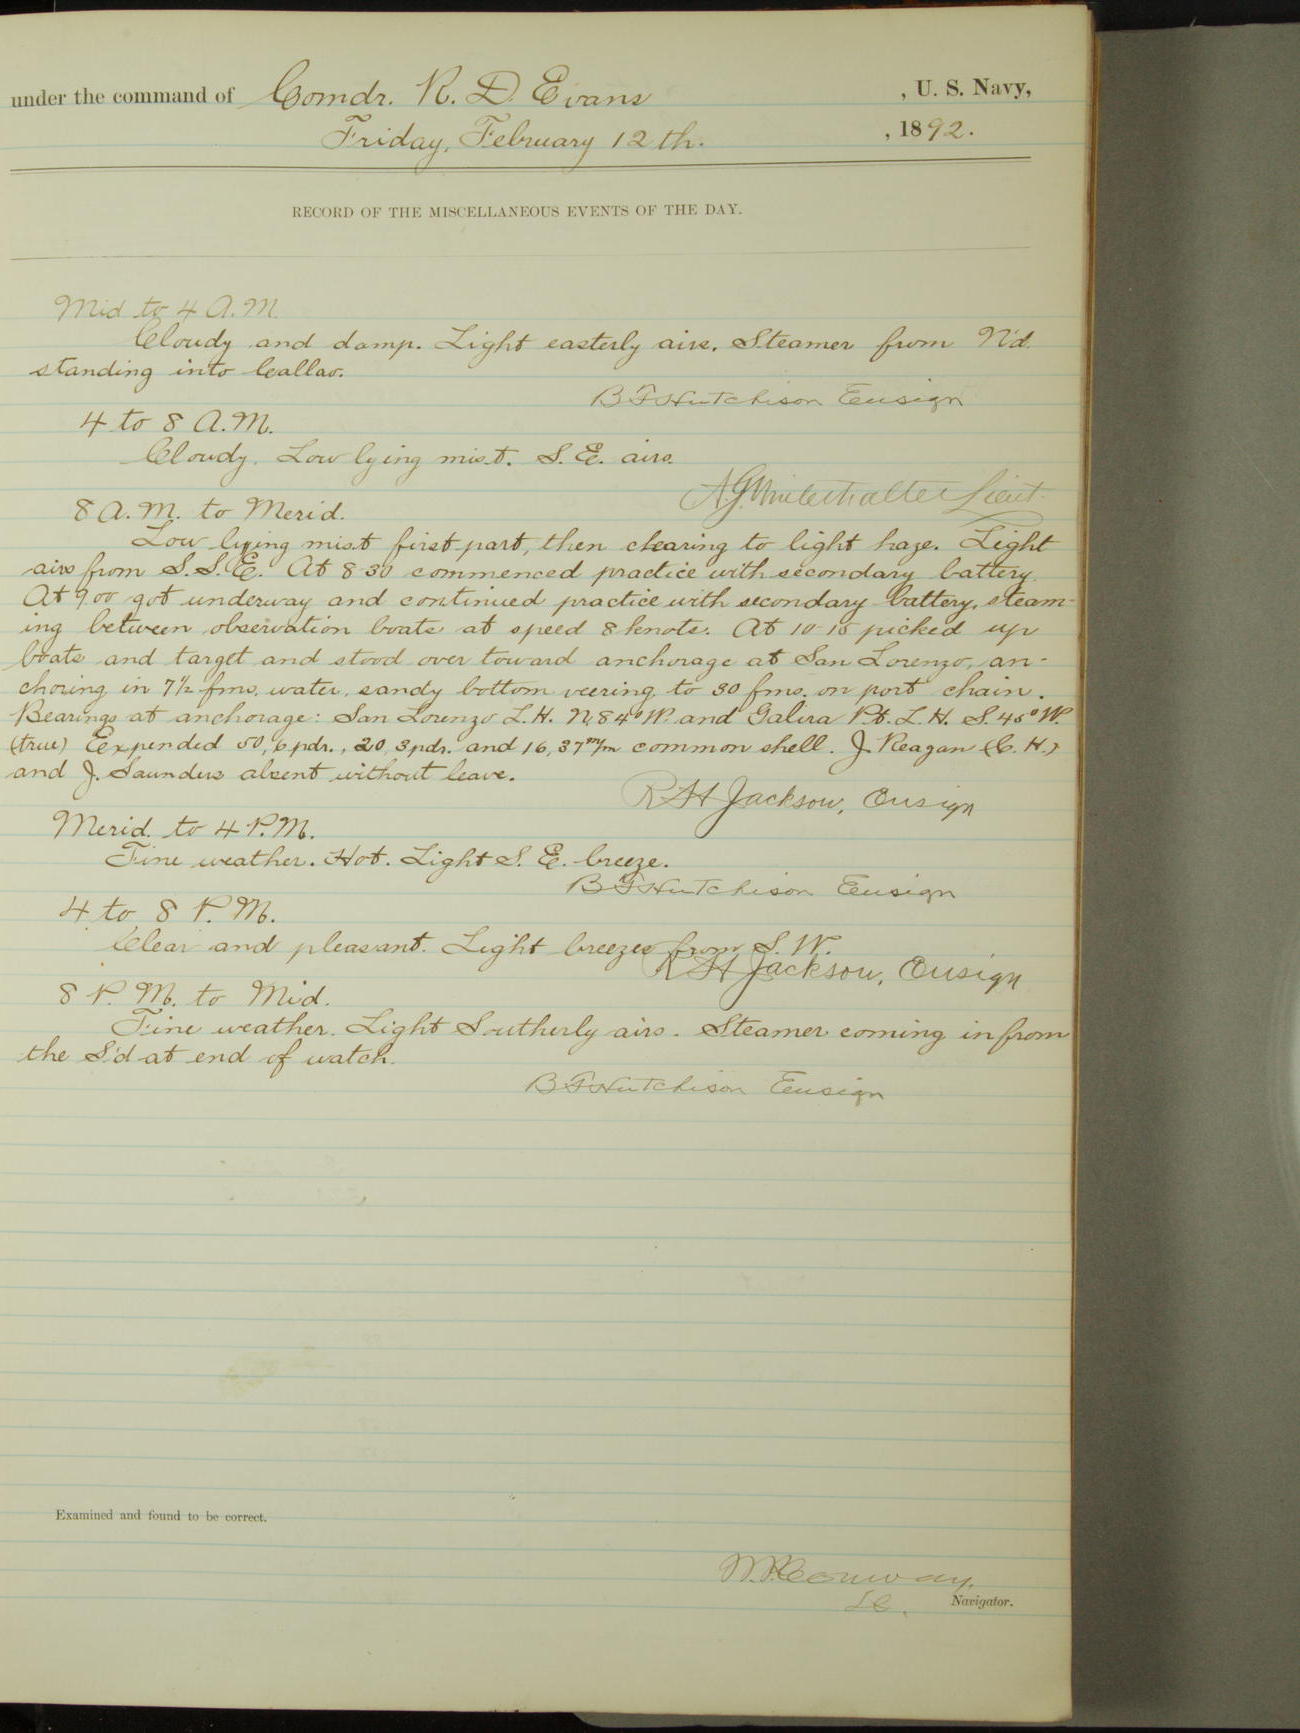 under the command of Comdr. R. D. Evans , U. S. Navy,
Friday, February 12th. , 1892.
RECORD OF THE MISCELLANEOUS EVENTS OF THE DAY.
Mid to 4 A.M.
Cloudy and damp. Light easterly airs. Steamer from N'd.
standing into Callao.
B F Hutchison Ensign
4 to 8 A.M.
Cloudy. Low lying mist. S. E. airs.
A.G. Winterhalter Lieut.
8 A.M. to Merid.
Low lying mist first part, then clearing to light haze. Light
airs from S.S.E. At 8 30 commenced practice with secondary battery.
At 9.00 got underway and continued practice with secondary battery, steam-
ing between observation boats at speed 8 knots. At 10-15 picked up
boats and target and stood over toward anchorage at San Lorenzo, an-
choring in 7½ fms. water, sandy bottom veering to 30 fms. on port chain.
Bearings at anchorage: San Lorenzo L.H. N. 84° W. and Galera Pt. L.H. S. 45° W.
(true) Expended 50, 6 pdr., 20, 3 pdr. and 16, 37 m/m common shell. J. Reagan (C.H.)
and J. Saunders absent without leave.
R H Jackson, Ensign
Merid. to 4 P.M.
Fine weather. Hot. Light S. E. breeze.
B F Hutchison Ensign
4 to 8 P.M.
Clear and pleasant. Light breezes from S. W.
R H Jackson, Ensign
8 P.M. to Mid.
Fine weather. Light Southerly airs. Steamer coming in from
the S'd at end of watch.
B F Hutchison Ensign
Examined and found to be correct.
W.P. Conway,
Lt. Navigator.